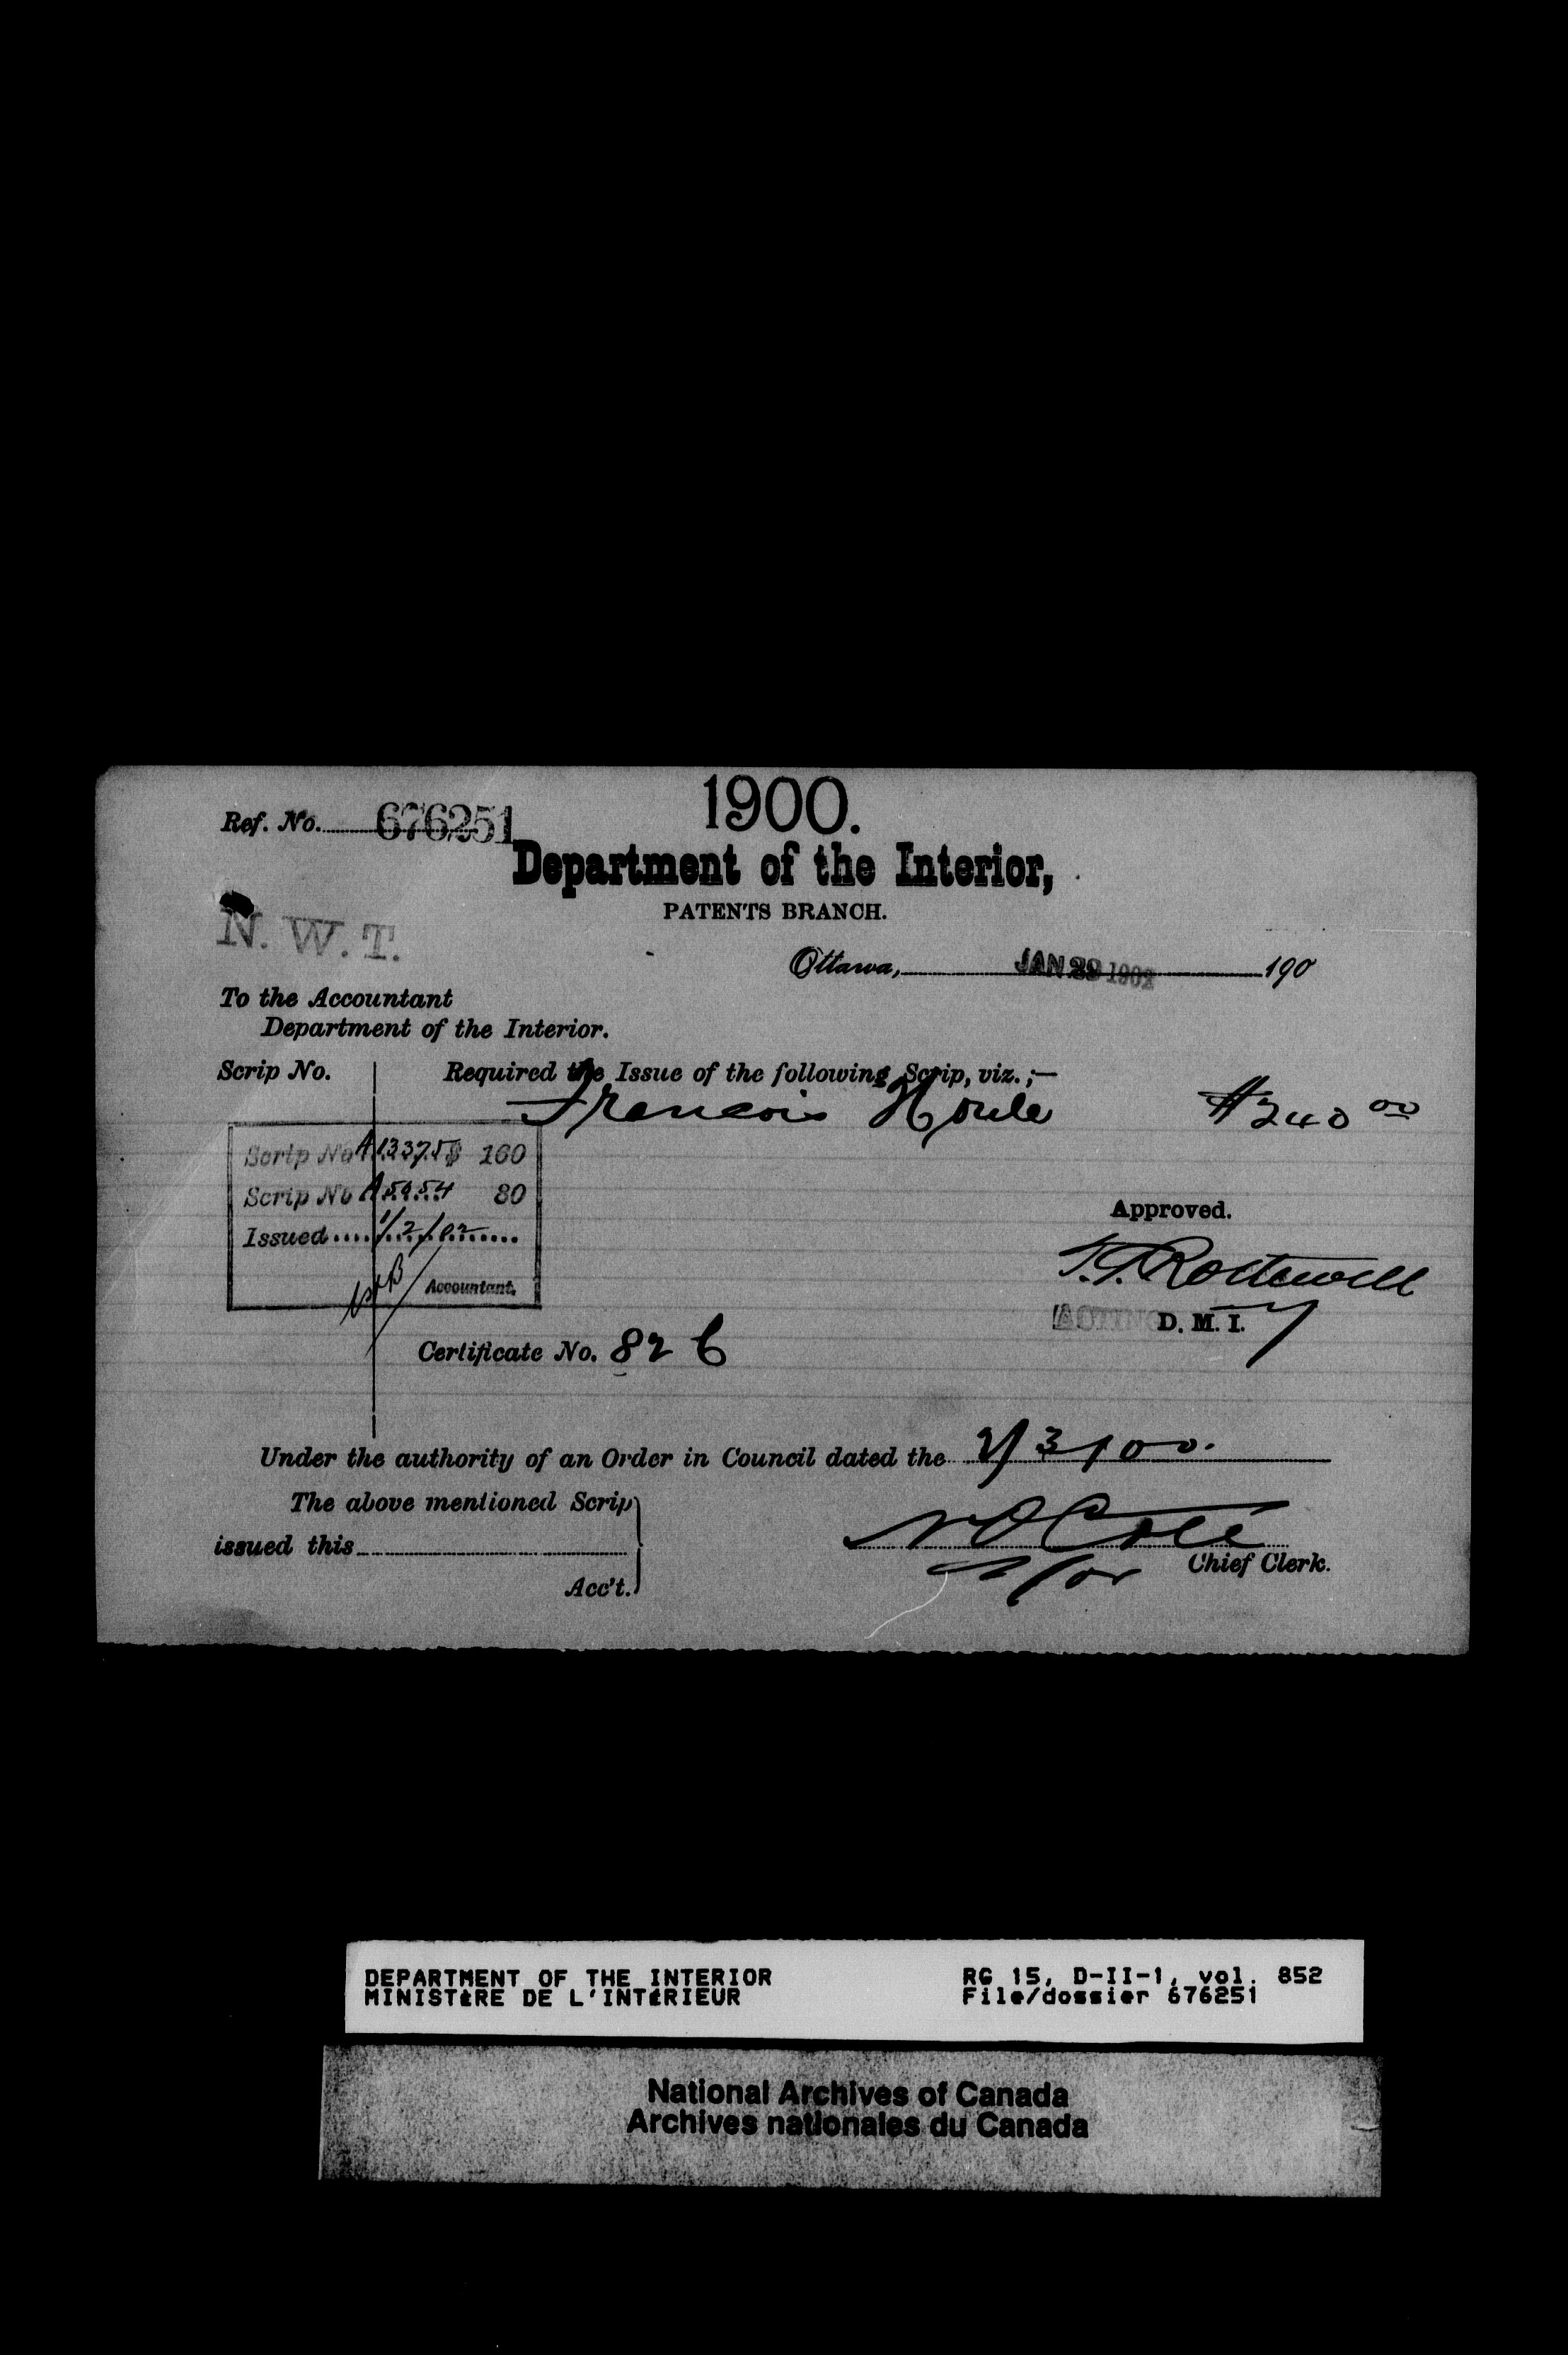 1900.
Ref. No. 676251
Department of the Interior,
PATENTS BRANCH.
N. W. T.
Ottawa, JAN 29 1902 190
To the Accountant
Department of the Interior.
Scrip No. Required the Issue of the following Scrip, viz.;—
Francois Houle $240 00
Scrip No A13375 $ 160
Scrip No A5954 80
Issued.... 1/2/02
Accountant.
Approved.
T.G. Rothwell
ACTING D. M. I.
Certificate No. 826
Under the authority of an Order in Council dated the 2/3/00.
The above mentioned Scrip
issued this
Acc't.
N O Coté
Chief Clerk.
DEPARTMENT OF THE INTERIOR RG 15, D-II-1, vol. 852
MINISTÈRE DE L'INTÉRIEUR File/dossier 676251
National Archives of Canada
Archives nationales du Canada